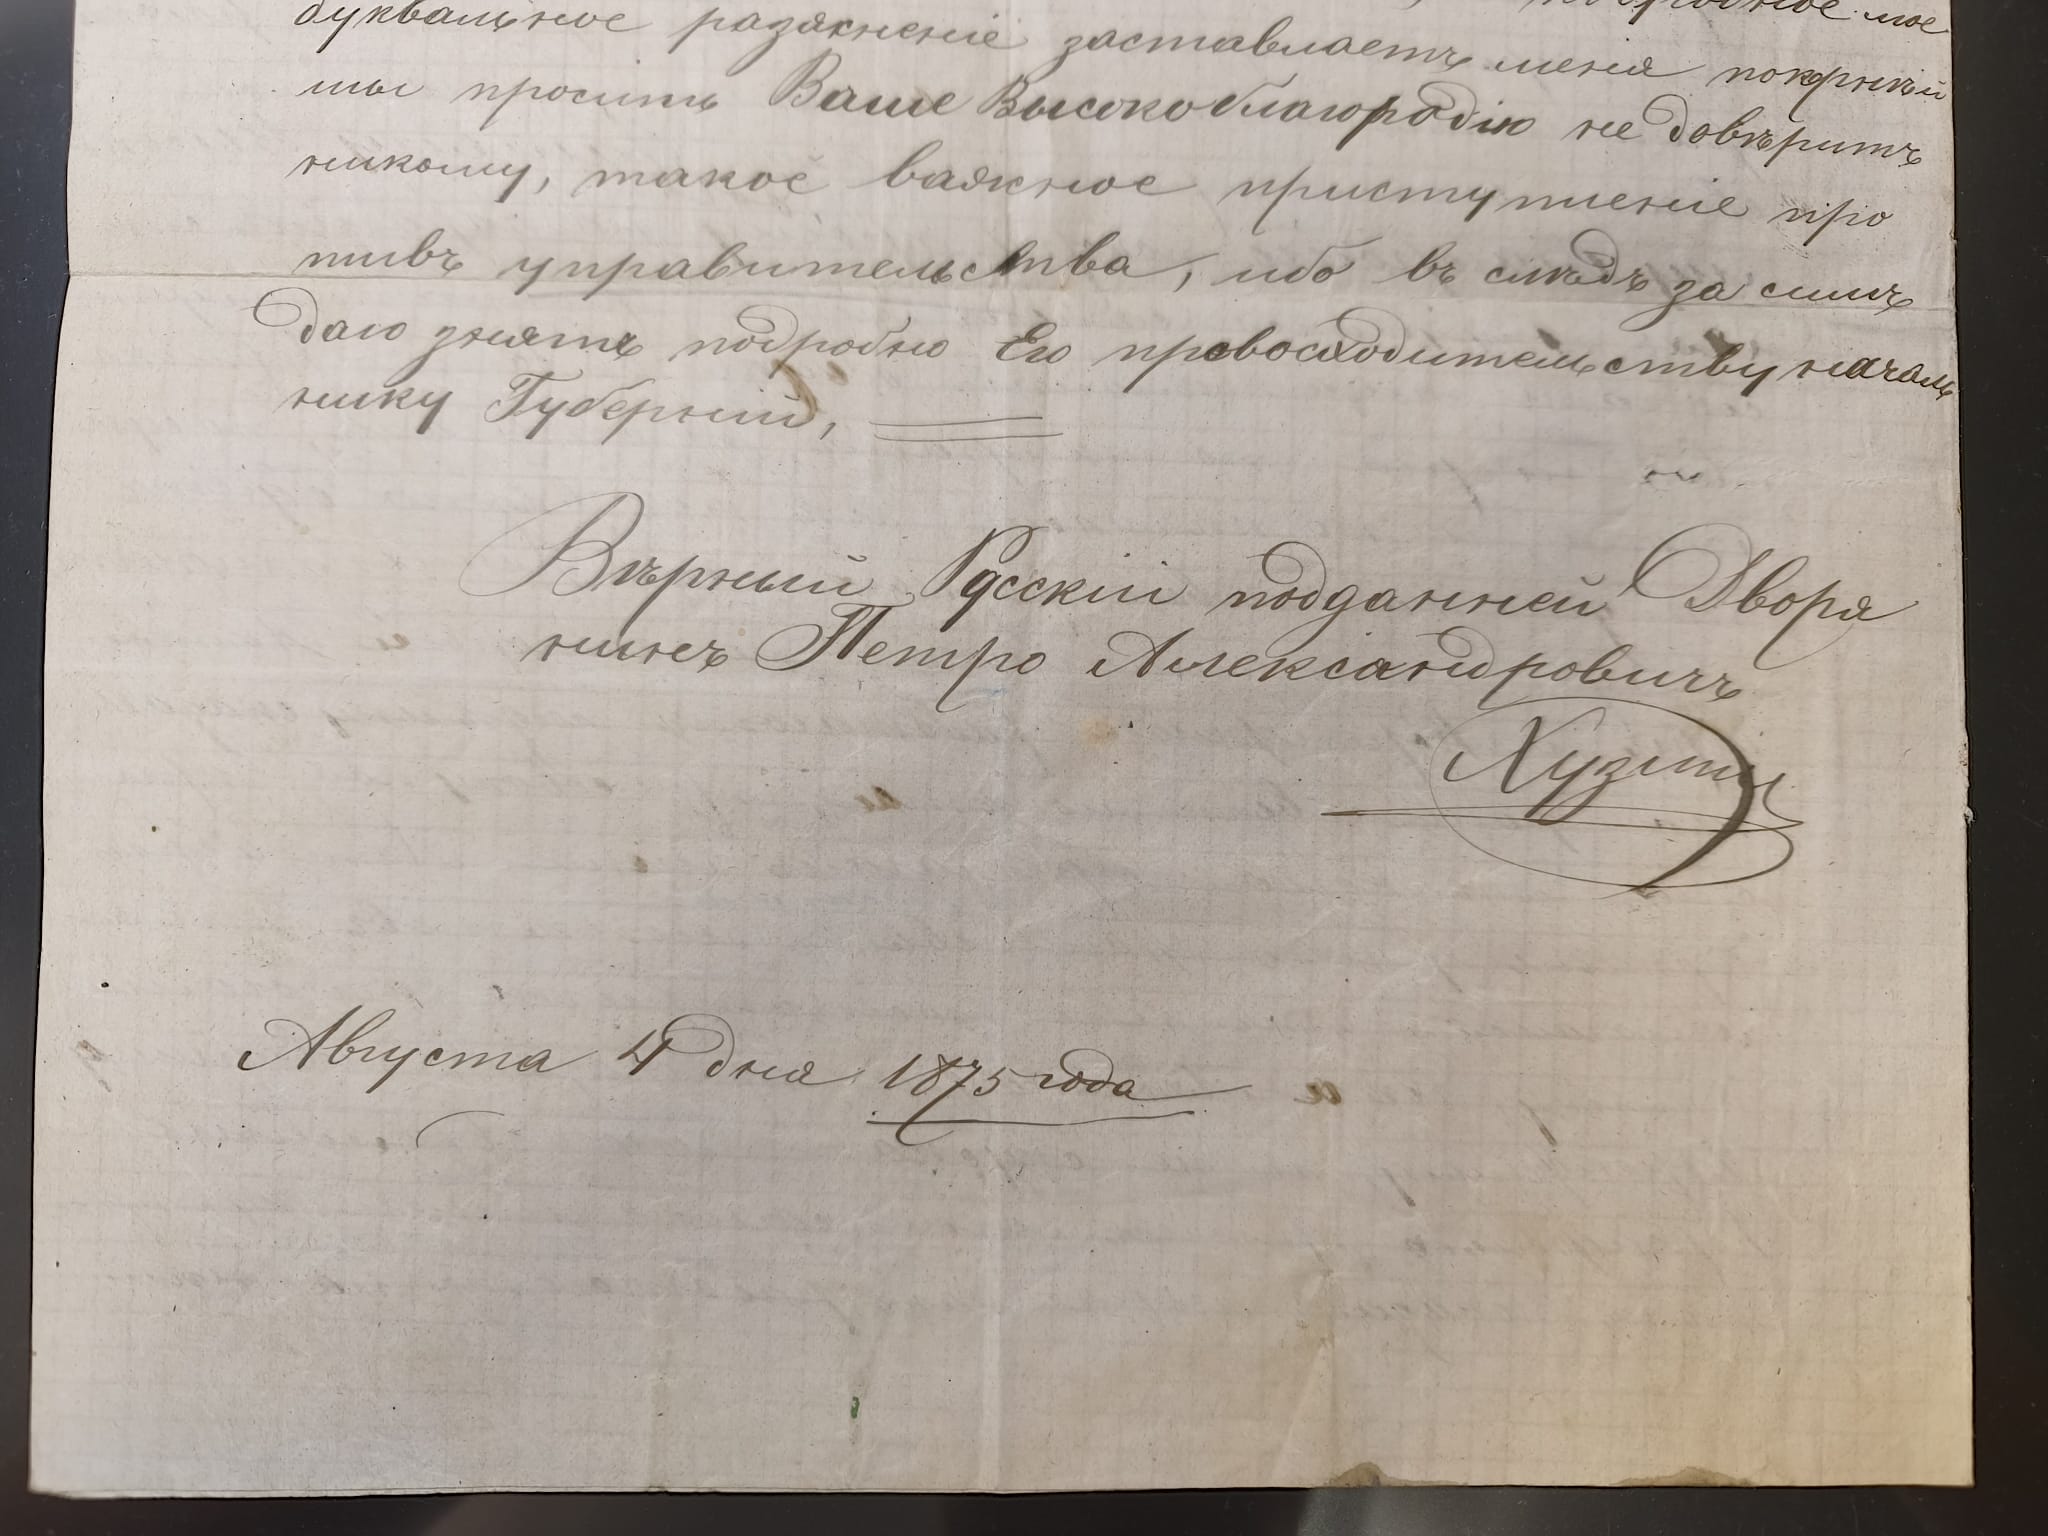 буквальное разяснение заставляетъ меня покорнѣй
ши просить Ваше Высокоблагородію не довѣрить
никому, такое важное приступленіе про
тивъ управительства, ибо въ слѣдъ за симъ
даю знать подробно Его превосходительству началь
нику Губерніи,
Вѣрный Русскій подданней Дворя
нинъ Петро Александровичъ
Августа 4 дня 1875 года